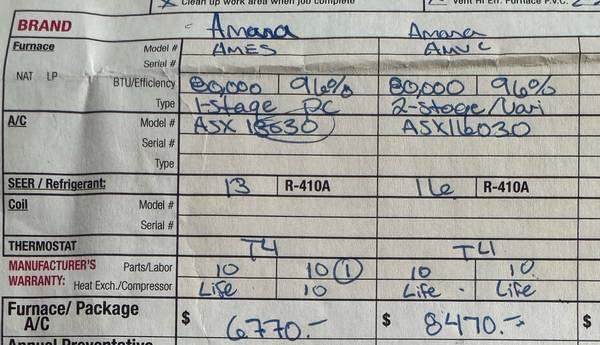 Clean up work area when job complete Vent Hi Eff. Furnace P.V.C.
BRAND Amana Amana
Furnace Model # AMES AMVC
Serial #
NAT LP BTU/Efficiency 80,000 96% 80,000 96%
Type 1-Stage DC 2-Stage/Vari
A/C Model # ASX 13030 ASX16030
Serial #
Type
SEER / Refrigerant: 13 R-410A 16 R-410A
Coil Model #
Serial #
THERMOSTAT T4 T4
MANUFACTURER'S Parts/Labor 10 10 1 10 10
WARRANTY: Heat Exch./Compressor Life 10 Life Life
Furnace/ Package
A/C $ 6770.- $ 8470.- $
Annual Preventative